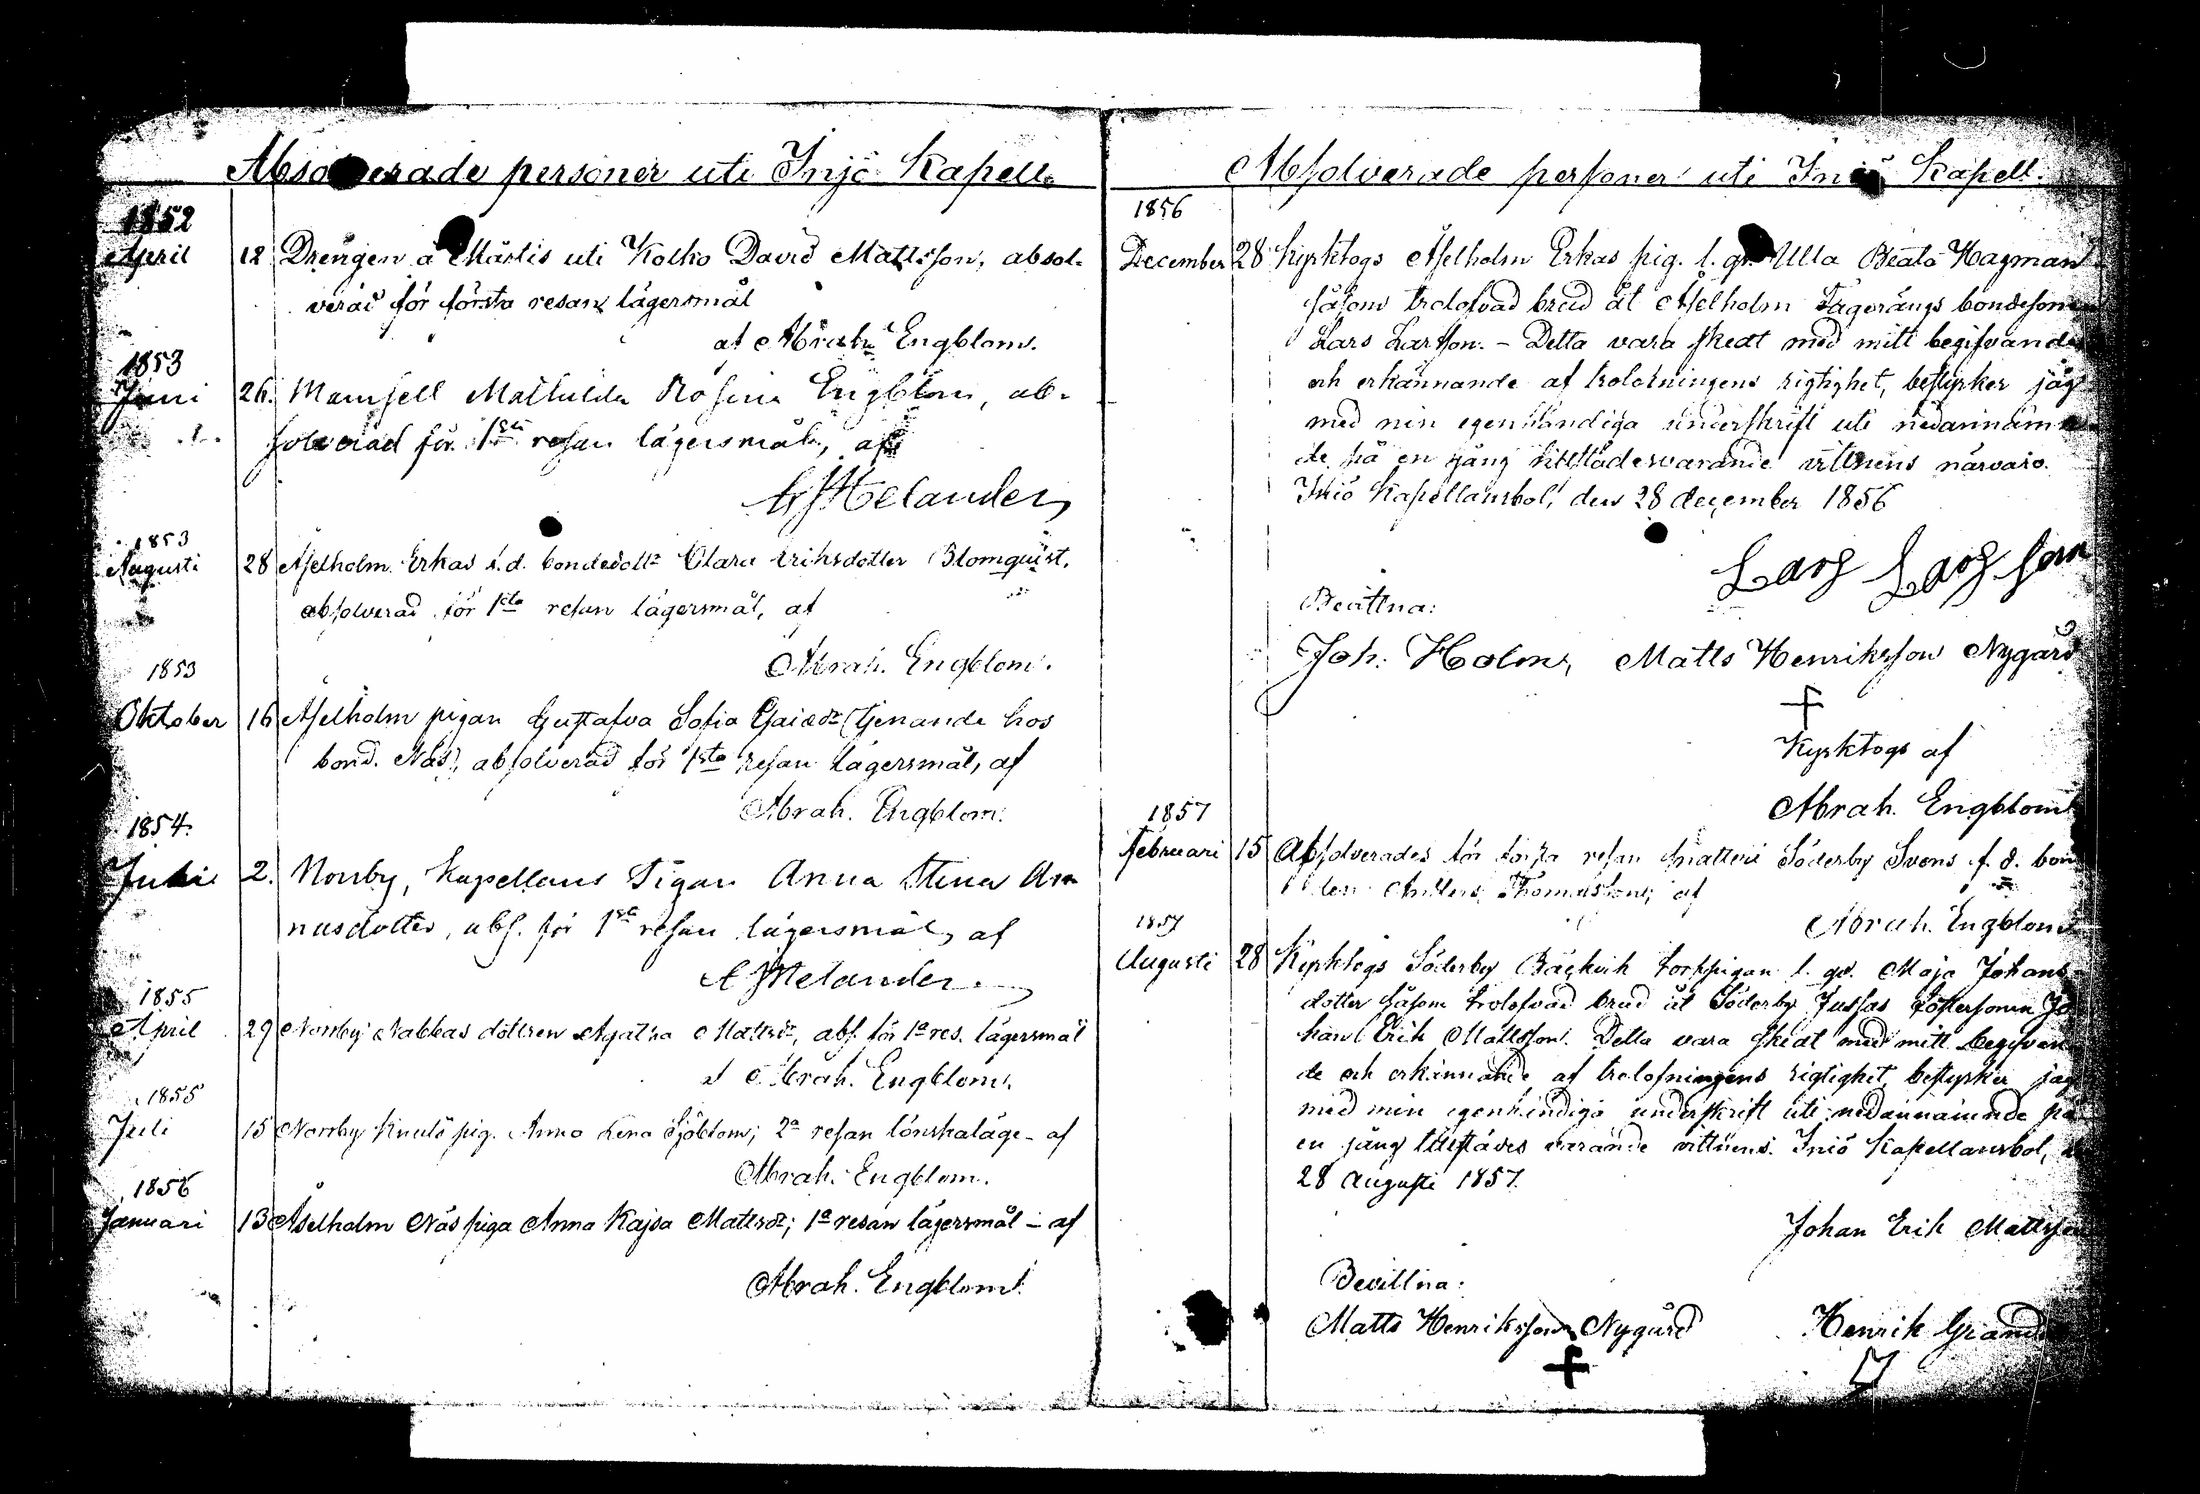 Absolverade personer uti Iniö Kapell.
1852
April 12 Drengen å Mårtis uti Kolko David Mattsson, absol-
verad för första resan lägersmål
af Abrah. Engblom.
1853
Juni 26. Mamsell Mathilda Rosina Engblom, ab-
solverad för 1sta resan lägersmål, af
Melander
1853
Augusti 28 Åselholm Erkas f.d. bondedottr Clara Eriksdotter Blomquist,
absolverad för 1sta resan lägersmål, af
Abrah. Engblom.
1853
Oktober 16 Åselholm pigan Gustafva Sofia (tjenande hos
bond. Näs), absolverad för 1sta resan lägersmål, af
Abrah. Engblom.
1854.
2. Norrby, Kapellans Pigan Anna Stina
nusdotter, abs. för 1sta resan lägersmål, af
Melander.
1855
April 29 Norrby Nabbas dottren Agatha Mattsdr, abs. för 1a res. lägersmål
af Abrah. Engblom.
1855
Juli 15 Norrby Knuts pig. Anna Lena Sjöblom; 2a resan lönskaläge - af
Abrah. Engblom.
1856
Januari 13 Åselholm Näs piga Anna Kajsa Mattsdr; 1a resan lägersmål - af
Abrah. Engblom.
Absolverade personer uti Iniö Kapell.
1856
December 28 Kyrktogs Åselholm Erkas pig. l. qv. Ulla Beata Hagman
såsom trolofvad brud åt Åselholm Tagerängs bondeson
Lars Larsson. - Detta vara skedt med mitt begifvande
och erkännande af trolofningens rigtighet, bestyrker jag
med min egenhändiga underskrift uti nedannämn
de på en gång tillstädesvarande vittnens närvaro.
Iniö Kapellansbol, den 28 december 1856
Lars Larsson
Bevittna:
Joh. Holm, Matts Henriksson Nygård
+
Kyrktogs af
Abrah. Engblom
1857
Februari 15 Absolverades för första resan snatteri Söderby Svens f. d. bon
den Anders Thomasson, af
Abrah. Engblom
1857
Augusti 28 Kyrktogs Söderby Bäckvik torppigan l. qv. Maja Johans-
dotter såsom trolofvad brud åt Söderby Jussas fostersonen Jo
han Erik Mattsson. Detta vara skedt med mitt begifvan
de och erkännande af trolofningens rigtighet, bestyrker jag
med min egenhändiga underskrift uti nedannämnde på
en gång tillstädes varande vittnens. Iniö Kapellansbol,
28 Augusti 1857.
Johan Erik Mattsson
Bevittna:
Matts Henriksson Nygård Henrik
+